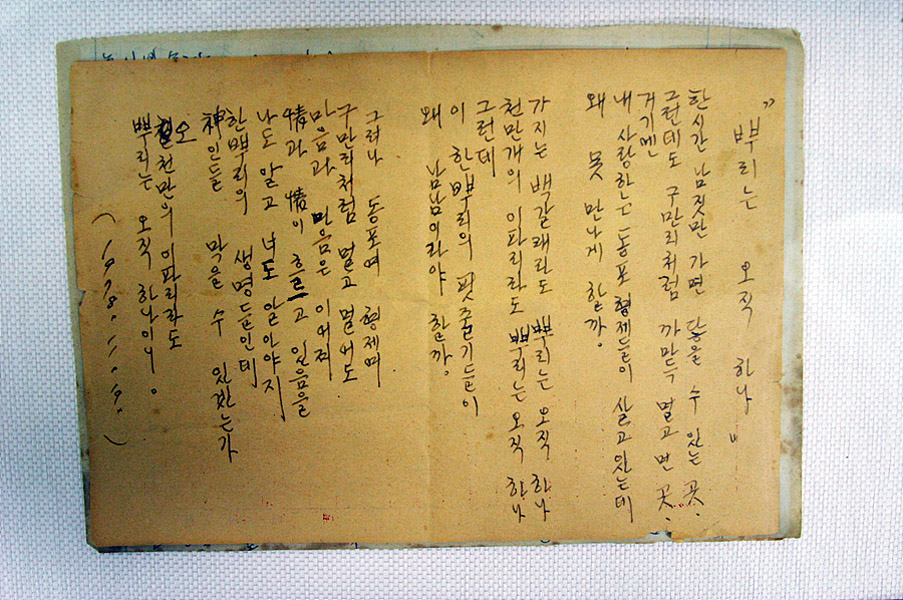 "뿌리는 오직 하나"
한시간 남짓만 가면 닿을 수 있는 곳.
그런데도 구만리처럼 까마득 멀고 먼 곳.
거기엔
내 사랑하는 동포 형제들이 살고 있는데
왜 못 만나게 할까.
가지는 백갈래라도 뿌리는 오직 하나
천만개의 이파리라도 뿌리는 오직 하나
그런데
이 한뿌리의 핏줄기들이
왜 남남이라야 할까.
그러나 동포여 형제여
구만리처럼 멀고 멀어도
마음과 마음은 이어져
情과 情이 흐르고 있음을
나도 알고 너도 알아야지
한뿌리의 생명들인데
神인들 막을 수 있겠는가
오천만의 이파리라도
뿌리는 오직 하나이니.
(1978. 11. 19.)